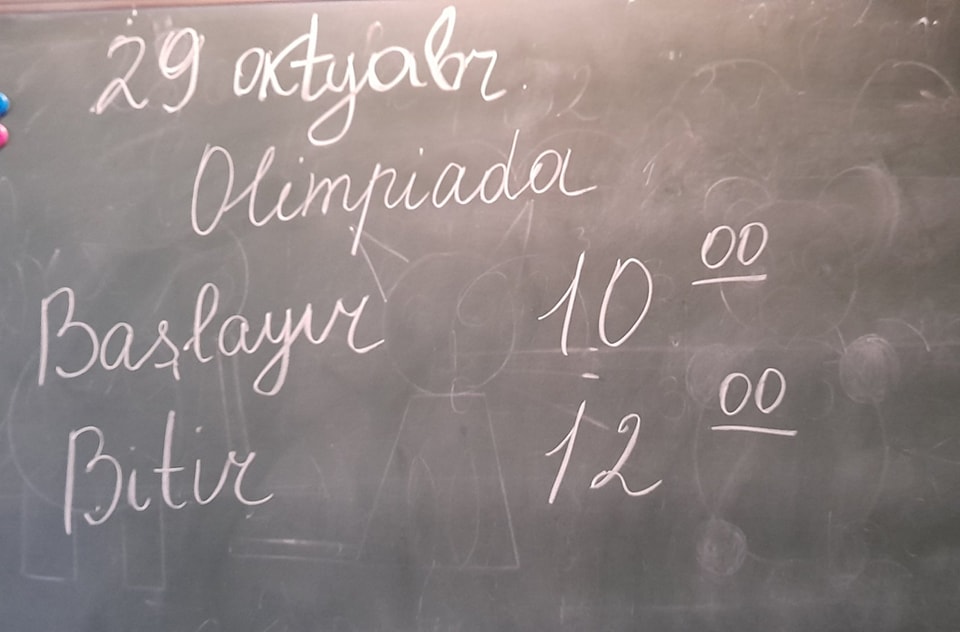 29 oktyabr.
Olimpiada
Başlayır 10 00
Bitir 12 00